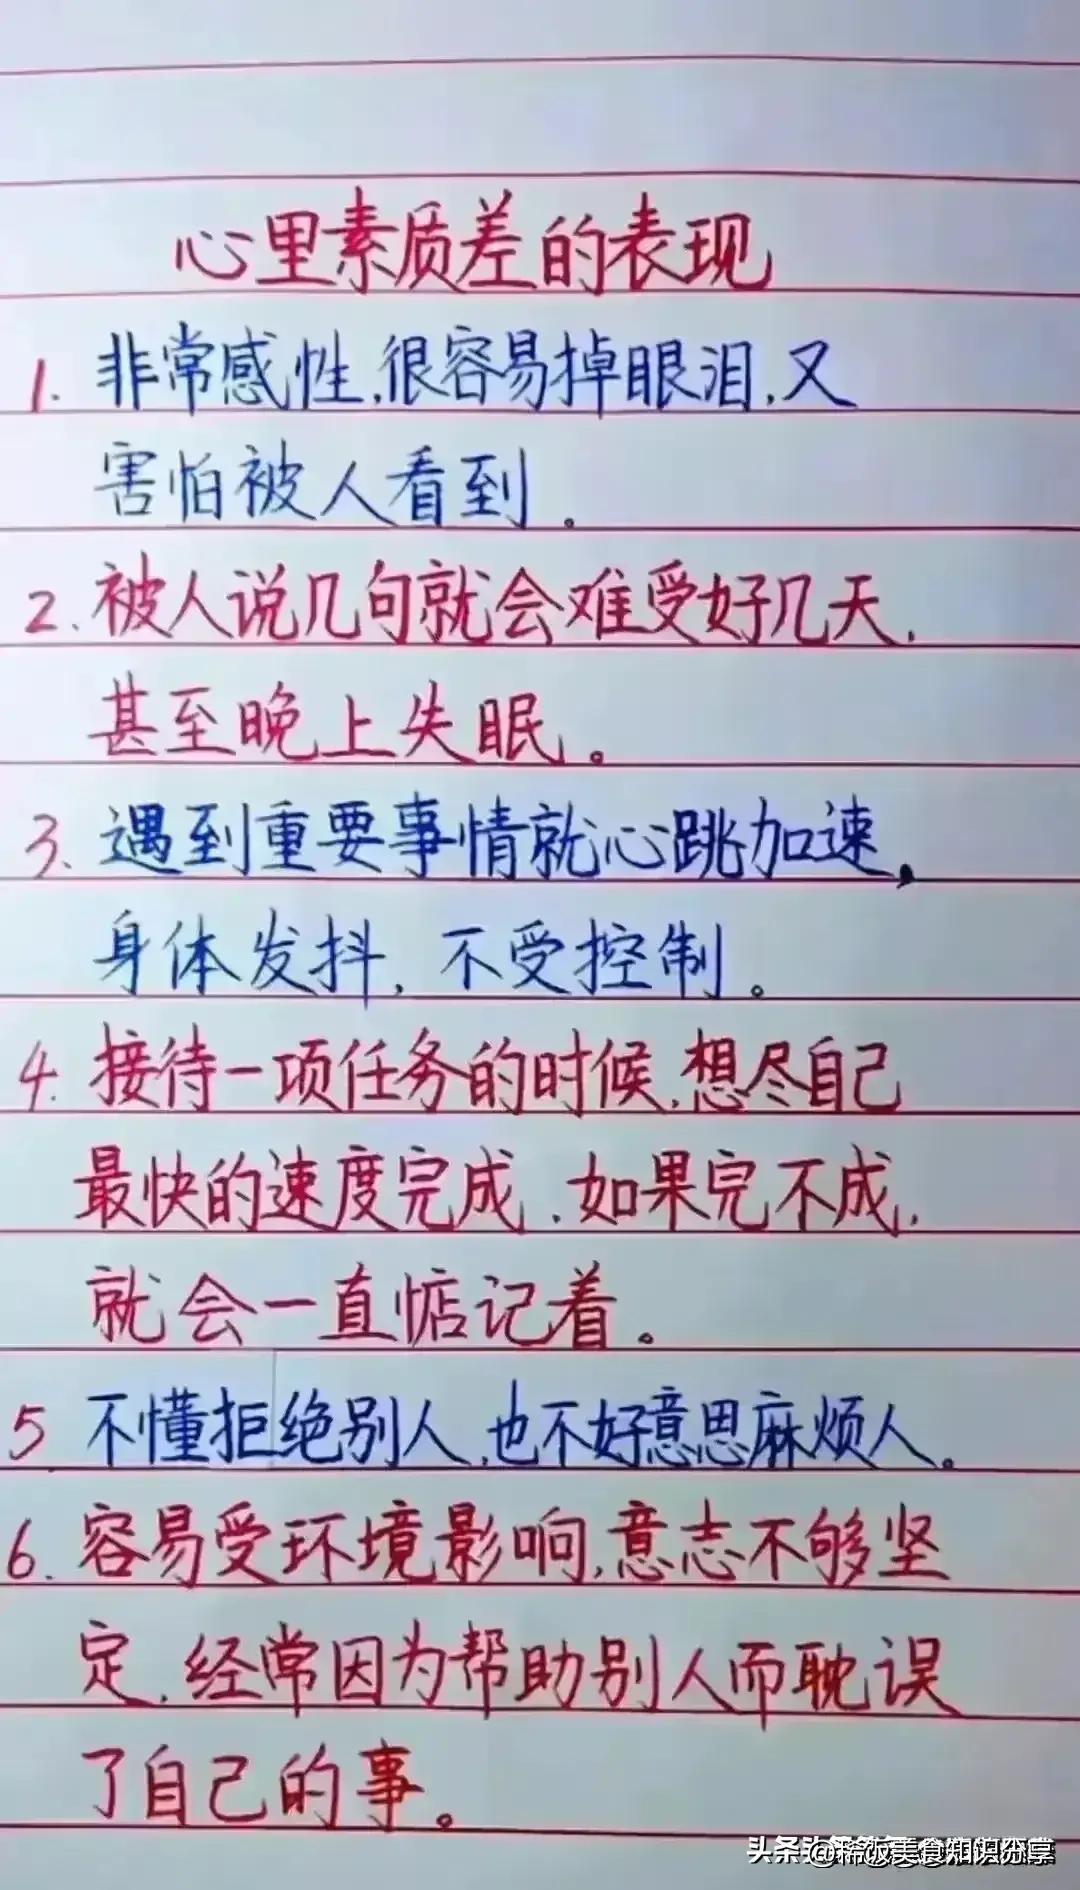 心里素质差的表现
1. 非常感性,很容易掉眼泪,又
害怕被人看到。
2. 被人说几句就会难受好几天,
甚至晚上失眠。
3. 遇到重要事情就心跳加速,
身体发抖,不受控制。
4. 接待一项任务的时候,想尽自己
最快的速度完成,如果完不成,
就会一直惦记着。
5 不懂拒绝别人,也不好意思麻烦人。
6. 容易受环境影响,意志不够坚
定,经常因为帮助别人而耽误
了自己的事。
头条 @稀饭美食知识分享